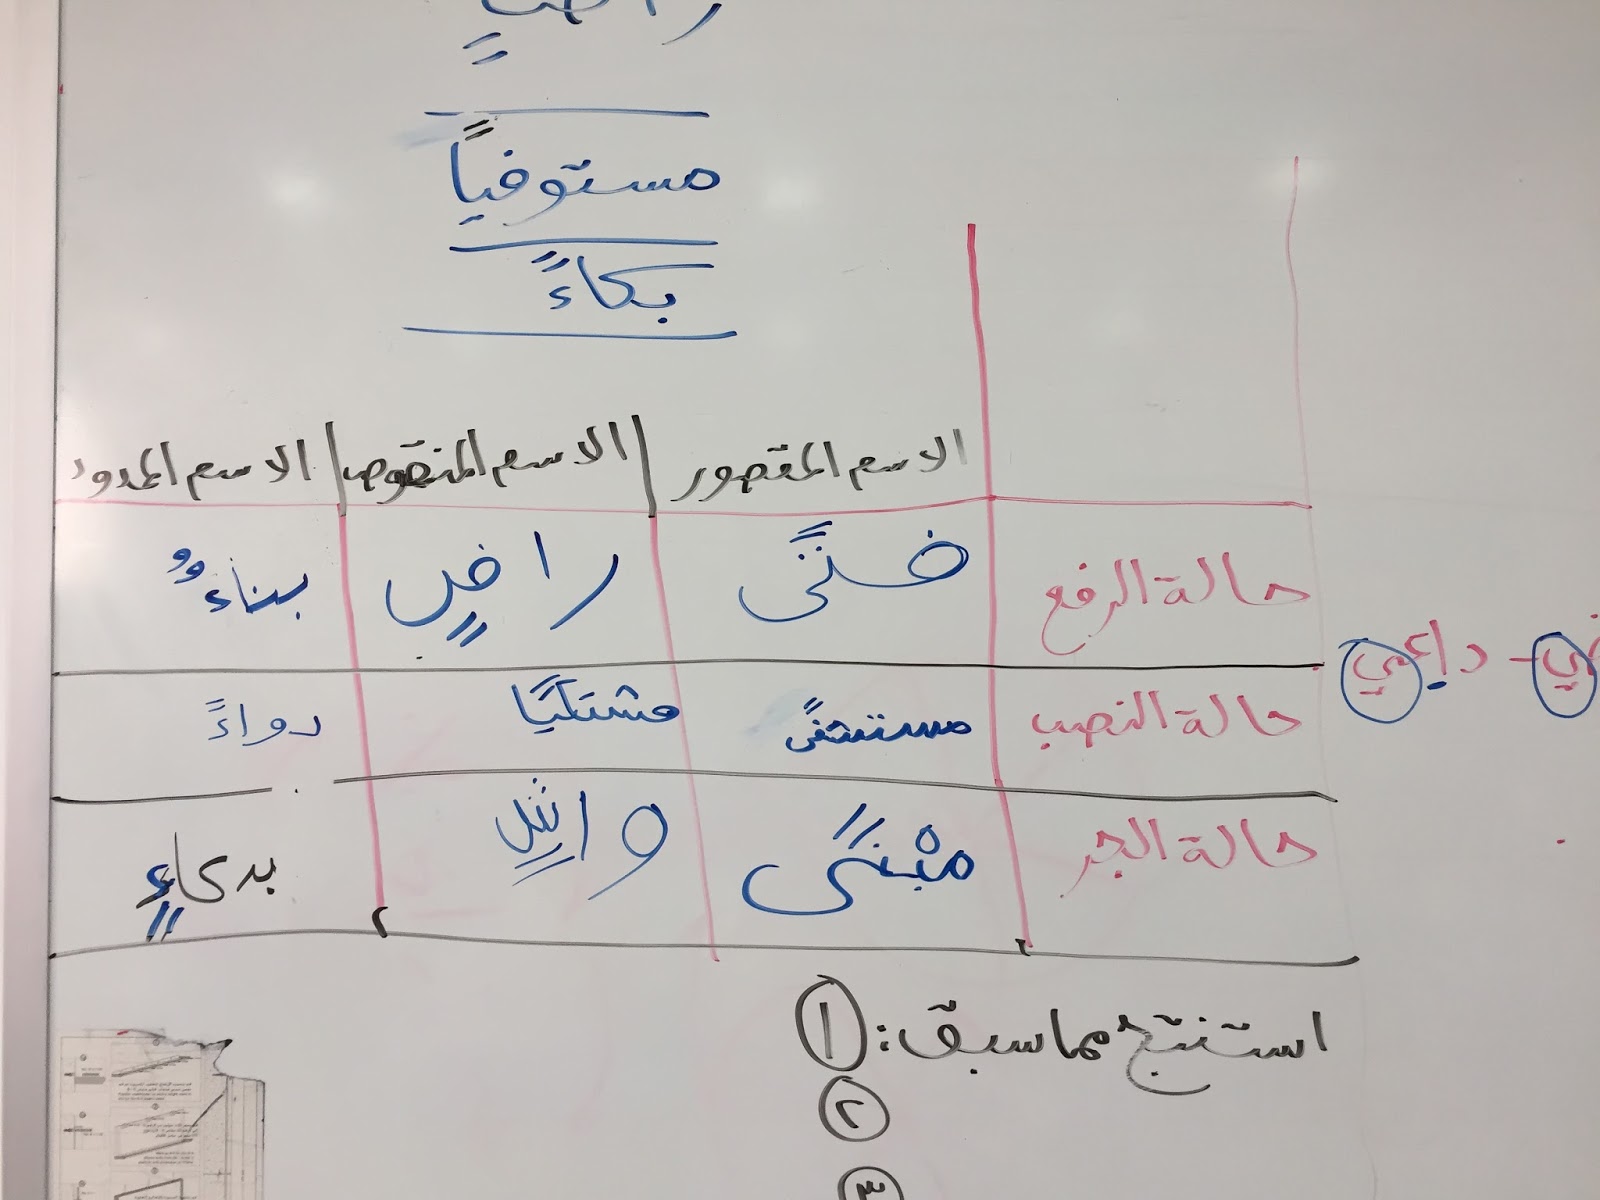 مستوفيًا
بكاءً
الاسم المقصور الاسم المنقوص الاسم الممدود
حالة الرفع ضنًى راضٍ بناءٌ
حالة النصب مستشفًى مشتكيًا دواءً
حالة الجر مبنًى واشٍ بدعاءٍ
داعي
استنتج مما سبق: ١
٢
٣